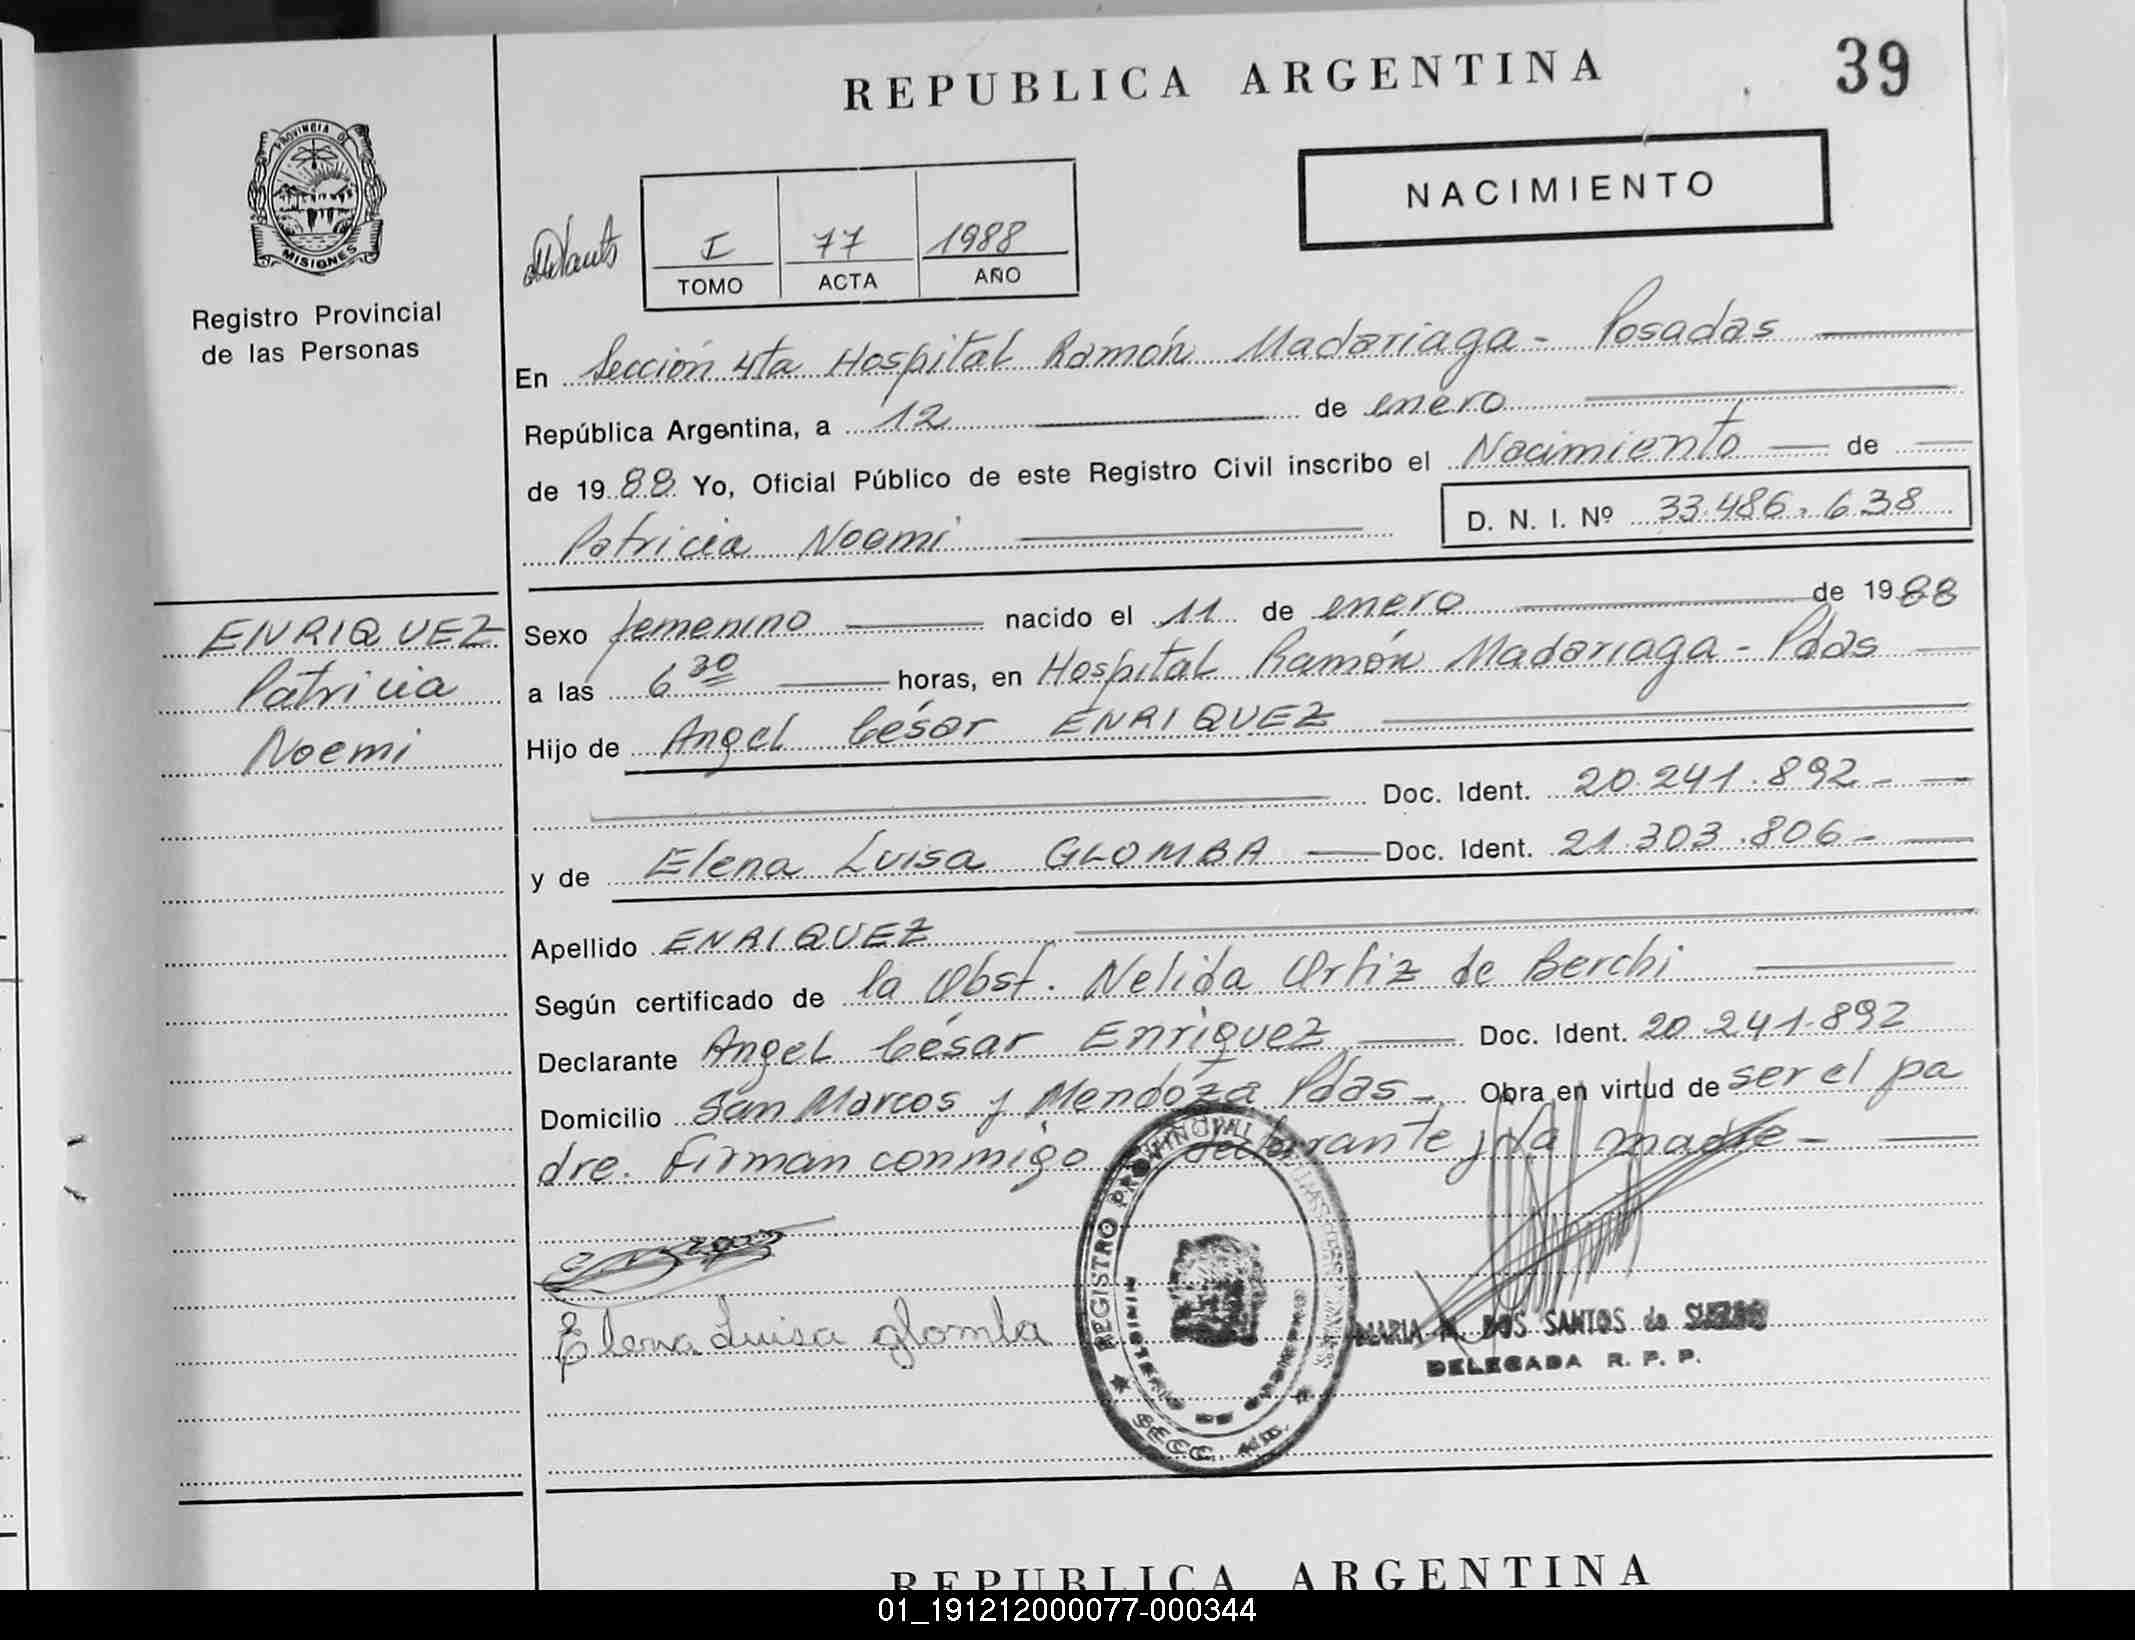 REPUBLICA ARGENTINA
39
NACIMIENTO
PROVINCIA DE
MISIONES
Registro Provincial
de las Personas
I 77 1988
TOMO ACTA AÑO
En Sección 4ta Hospital Ramón Madariaga - Posadas
República Argentina, a 12 de enero
de 1988 Yo, Oficial Público de este Registro Civil inscribo el Nacimiento de
Patricia Noemi D. N. I. Nº 33.486.638
ENRIQUEZ
Patricia
Noemi
Sexo femenino nacido el 11 de enero de 1988
a las 6 30 horas, en Hospital Ramón Madariaga - Pdas
Hijo de Angel César ENRIQUEZ
Doc. Ident. 20.241.892-
y de Elena Luisa GLOMBA Doc. Ident. 21.303.806-
Apellido ENRIQUEZ
Según certificado de la Obst. Nelida Ortiz de Berchi
Declarante Angel César Enriquez Doc. Ident. 20.241.892
Domicilio San Marcos y Mendoza Pdas - Obra en virtud de ser el pa
dre. Firman conmigo declarante y la madre -
Elena Luisa glomba
REGISTRO PROVINCIAL DE LAS PERSONAS
MINISTERIO DE GOBIERNO
SECC. 4ta.
MARIA DOS SANTOS de
DELEGADA R. P. P.
REPUBLICA ARGENTINA
01_191212000077-000344